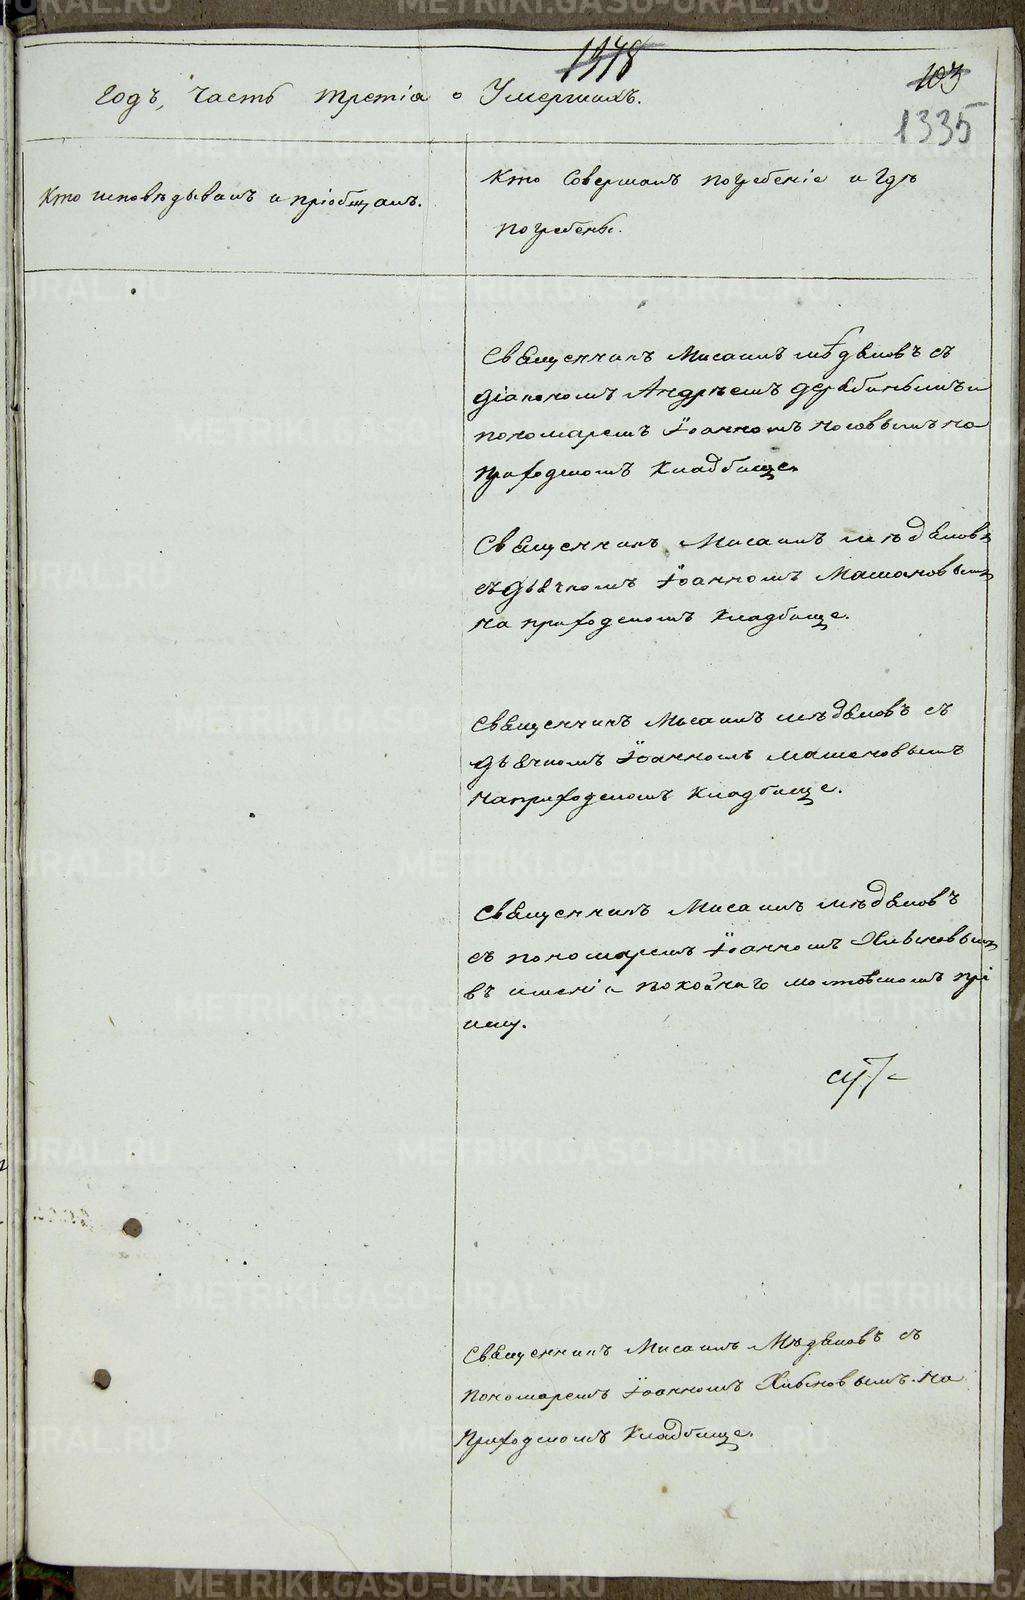 1378
103
1335
Годъ, Часть третіа о Умершихъ.
Кто исповѣдывалъ и пріобщалъ.
Кто Совершалъ погребеніе и гдѣ
погребены.
Священникъ Мисаилъ Мѣдяковъ съ
діакономъ Андреемъ Дерябинымъ и
пономаремъ Іоанномъ на
приходскомъ кладбище.
Священникъ Мисаилъ Мѣдяковъ
съ дьячкомъ Іоанномъ Машановымъ
на приходскомъ кладбище.
Священникъ Мисаилъ Мѣдяковъ съ
дьячкомъ Іоанномъ Машановымъ
на приходскомъ кладбище.
Священникъ Мисаилъ Мѣдяковъ
съ пономаремъ Іоанномъ
въ имѣніи покойнаго
Священникъ Мисаилъ Мѣдяковъ съ
пономаремъ Іоанномъ на
приходскомъ кладбище.
METRIKI.GASO-URAL.RU